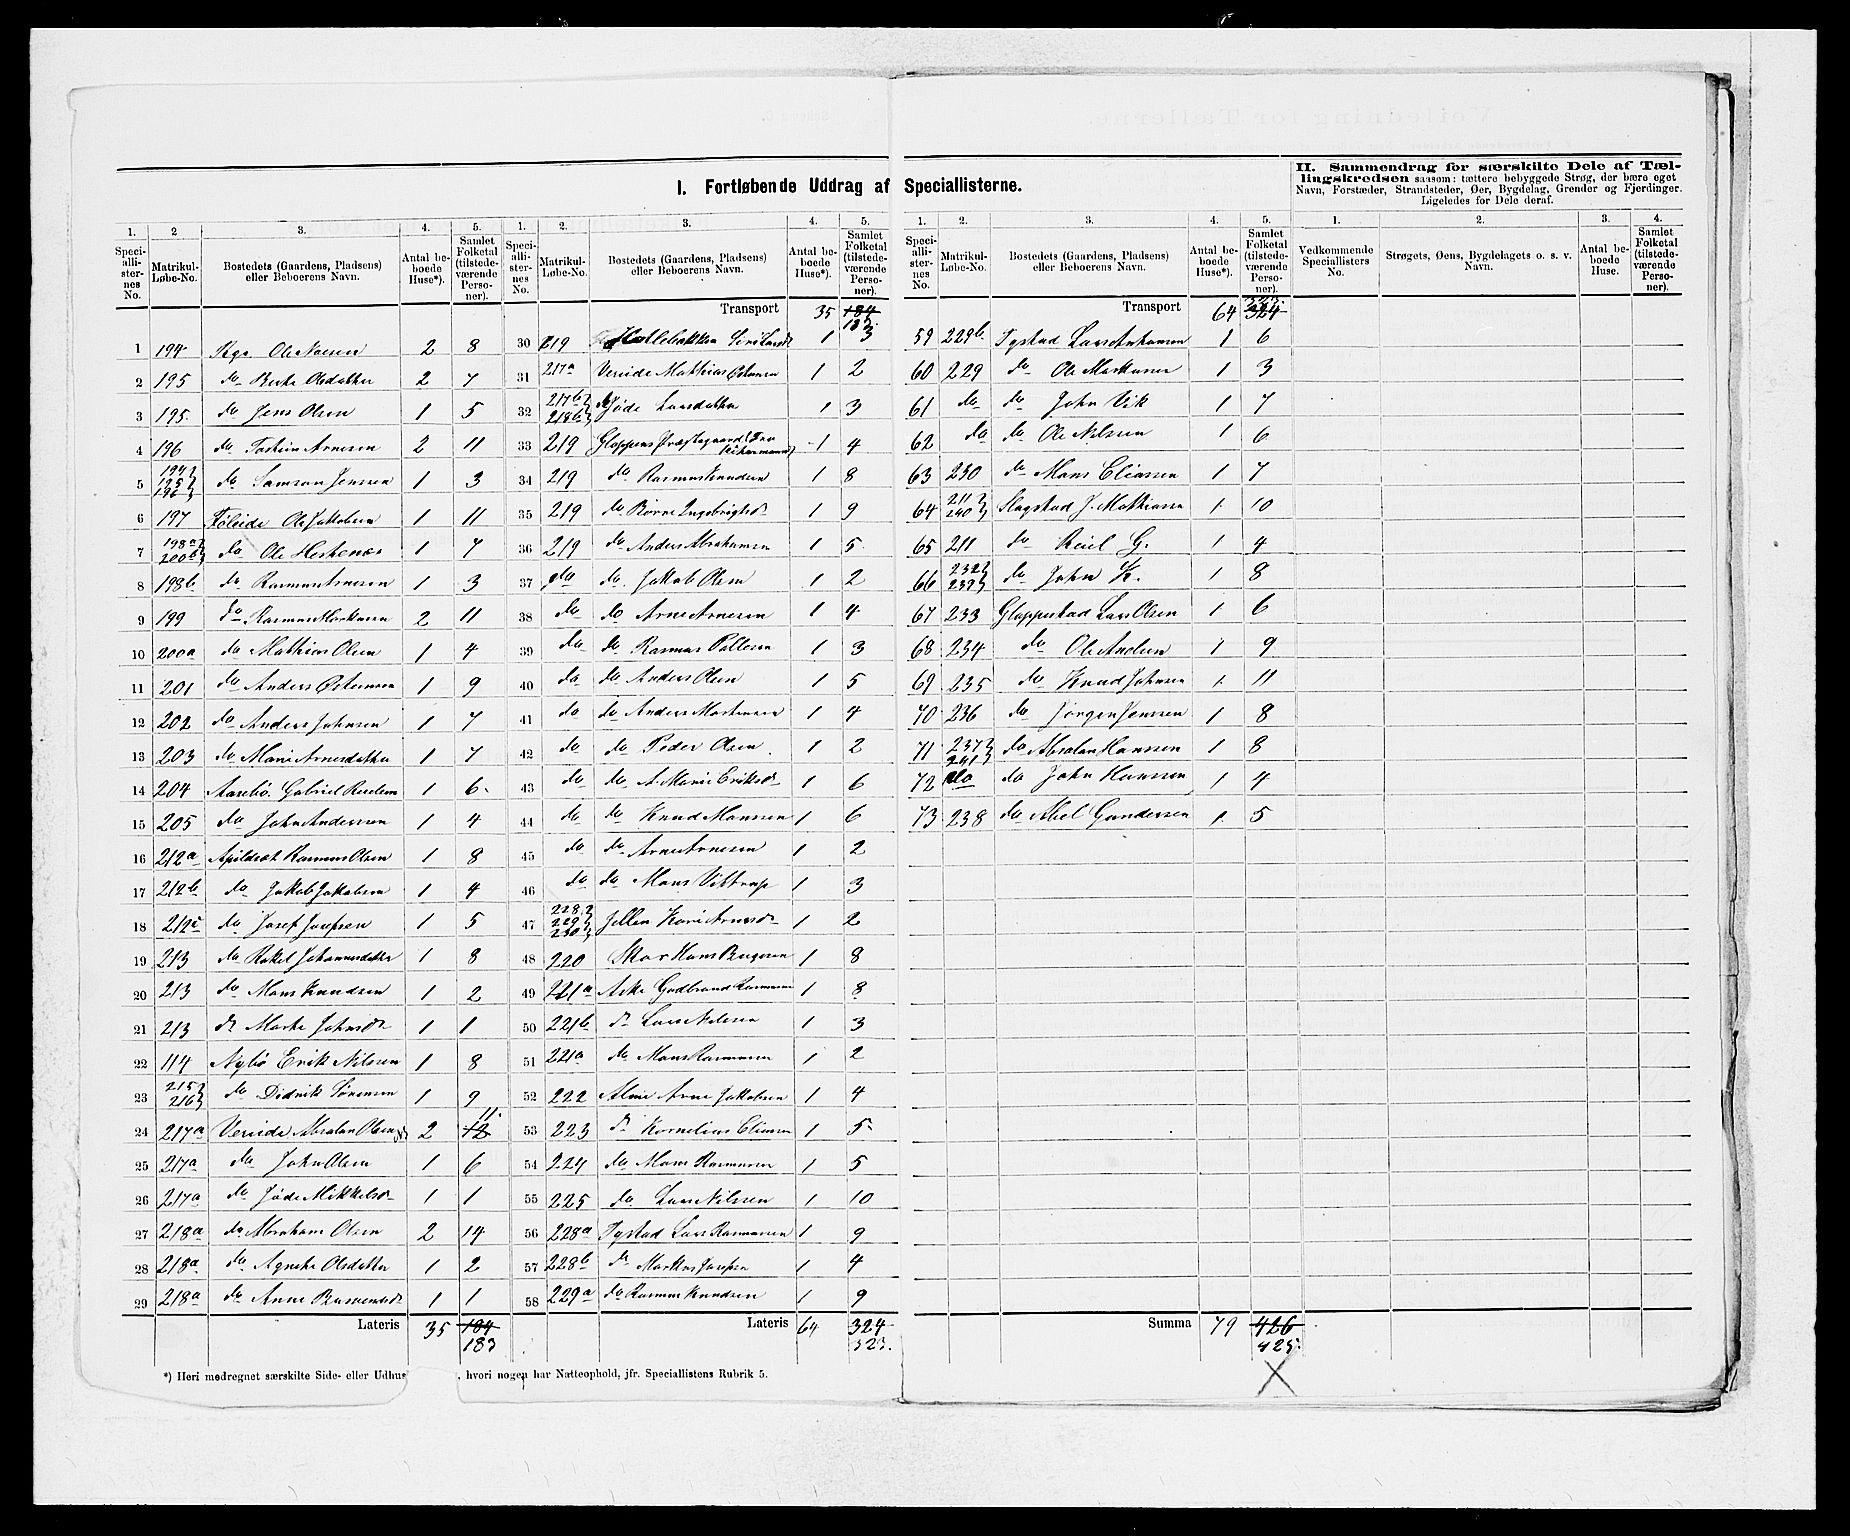 I. Fortløbende Uddrag af Speciallisterne.
II. Sammendrag for særskilte Dele af Tæl-
lingskredsen saasom: tættere bebyggede Strøg, der bære eget
Navn, Forstæder, Strandsteder, Øer, Bygdelag, Grender og Fjerdinger.
Ligeledes for Dele deraf.
1. 2 3. 4. 5.
Speci-allister-nes No. Matrikul-Løbe-No. Bostedets (Gaardens, Pladsens) eller Beboerens Navn. Antal be-boede Huse*). Samlet Folketal (tilstede-værende Perso-ner).
1 194 Rya Ole 2 8
2 195 do Berte Olsdatter 2 7
3 195 do Jens Olsen 1 5
4 196 do Arnesen 2 11
5 194 195 196 do Samson Jenssen 1 3
6 197 Føleide Ole Jakobsen 1 11
7 198a 200b do Ole Hestenes 1 7
8 198b do Rasmus Arnesen 1 3
9 199 do Rasmus Markusen 2 11
10 200a do Mathias Olsen 1 4
11 201 do Anders 1 9
12 202 do Anders Johnsen 1 7
13 203 do Marie Arnesdatter 1 7
14 204 Aasebø Gabriel 1 6
15 205 do John Anderssen 1 4
16 212a Apildset Rasmus Olsen 1 8
17 212b do Jakob Jakobsen 1 4
18 212c do Josef Josefsen 1 5
19 213 do Rakel Johannesdatter 1 8
20 213 do Mons Knudsen 1 2
21 213 do Marte Johnsdr 1 1
22 114 Nybø Erik Nilssen 1 8
23 215 216 do Didrik Sørensen 1 9
24 217a Vereide Absalon Olsen 2 12 11.
25 217a do John Olsen 1 6
26 217a do Jøde Mikkelsdr 1 1
27 218a do Abraham Olsen 2 14
28 218a do Agnete Olsdatter 1 2
29 218a do Anne 1 1
Lateris 35 184
183
1. 2. 3. 4. 5.
Speci-allister-nes No. Matrikul-Løbe-No. Bostedets (Gaardens, Pladsens) eller Beboerens Navn. Antal be-boede Huse*). Samlet Folketal (tilstede-værende Perso-ner).
Transport 35 184
183
30 219 1 3
31 217a Vereide Mathias 1 2
32 217b 218b do Jøde Larsdatter 1 3
33 219 Gloppens Præstegaard 1 4
34 219 do Rasmus Knudsen 1 8
35 219 do Børre Ingebrigtsdr 1 9
36 219 do Anders Abrahamsen 1 5
37 do do Jakob Olsen 1 2
38 do do Arne Arnesen 1 4
39 do do Rasmus Pallesen 1 3
40 do do Anders Olsen 1 5
41 do do Anders Mortensen 1 4
42 do do Peder Olsen 1 2
43 do do A. Marie Eriksdr 1 6
44 do do Knud Monssen 1 6
45 do do Arne Arnesen 1 2
46 do do Mons Vittrup 1 3
47 228 229 230 Jellen Kari Arnesdr 1 2
48 220 Skor Hans 1 8
49 221a Aske Gudbrand Rasmussen 1 8
50 221b do Lars Nilssen 1 3
51 221a do Mons Rasmussen 1 2
52 222 Alme Arne Jakobsen 1 4
53 223 do Kornelius Eliassen 1 5
54 224 do Mons Rasmussen 1 5
55 225 do Lars Nilssen 1 10
56 228a Tystad Lars Rasmussen 1 9
57 228b do Markus Josefsen 1 4
58 229a do Rasmus Knudsen 1 9
Lateris 64 324
323.
1. 2. 3. 4. 5.
Speci-allister-nes No. Matrikul-Løbe-No. Bostedets (Gaardens, Pladsens) eller Beboerens Navn. Antal be-boede Huse*). Samlet Folketal (tilstede-værende Perso-ner).
Transport 64 323. 324
59 229b Tystad Lars 1 6
60 229 do Ole Markussen 1 3
61 do do John Vik 1 7
62 do do Ole Nilssen 1 6
63 230 do Mons Eliassen 1 7
64 211 240 Slagstad J. Mathiassen 1 10
65 211 do G. 1 4
66 232 239 do John K. 1 8
67 233 Gloppestad Lars Olsen 1 6
68 234 do Ole Andersen 1 9
69 235 do Knud Johnsen 1 11
70 236 do Jørgen Jenssen 1 8
71 237 241 do Absalon Hanssen 1 8
72 do do John Hanssen 1 4
73 238 do Abel Gundersen 1 5
Summa 79 426
425.
1. 2. 3. 4.
Vedkommende Speciallisters No. Strøgets, Øens, Bygdelagets o. s. v. Navn. Antal beboede Huse. Samlet Folketal (tilstede-værende Perso-ner).
*) Heri medregnet særskilte Side- eller Udhus , hvori nogen har Natteophold, jfr. Speciallistens Rubrik 5.